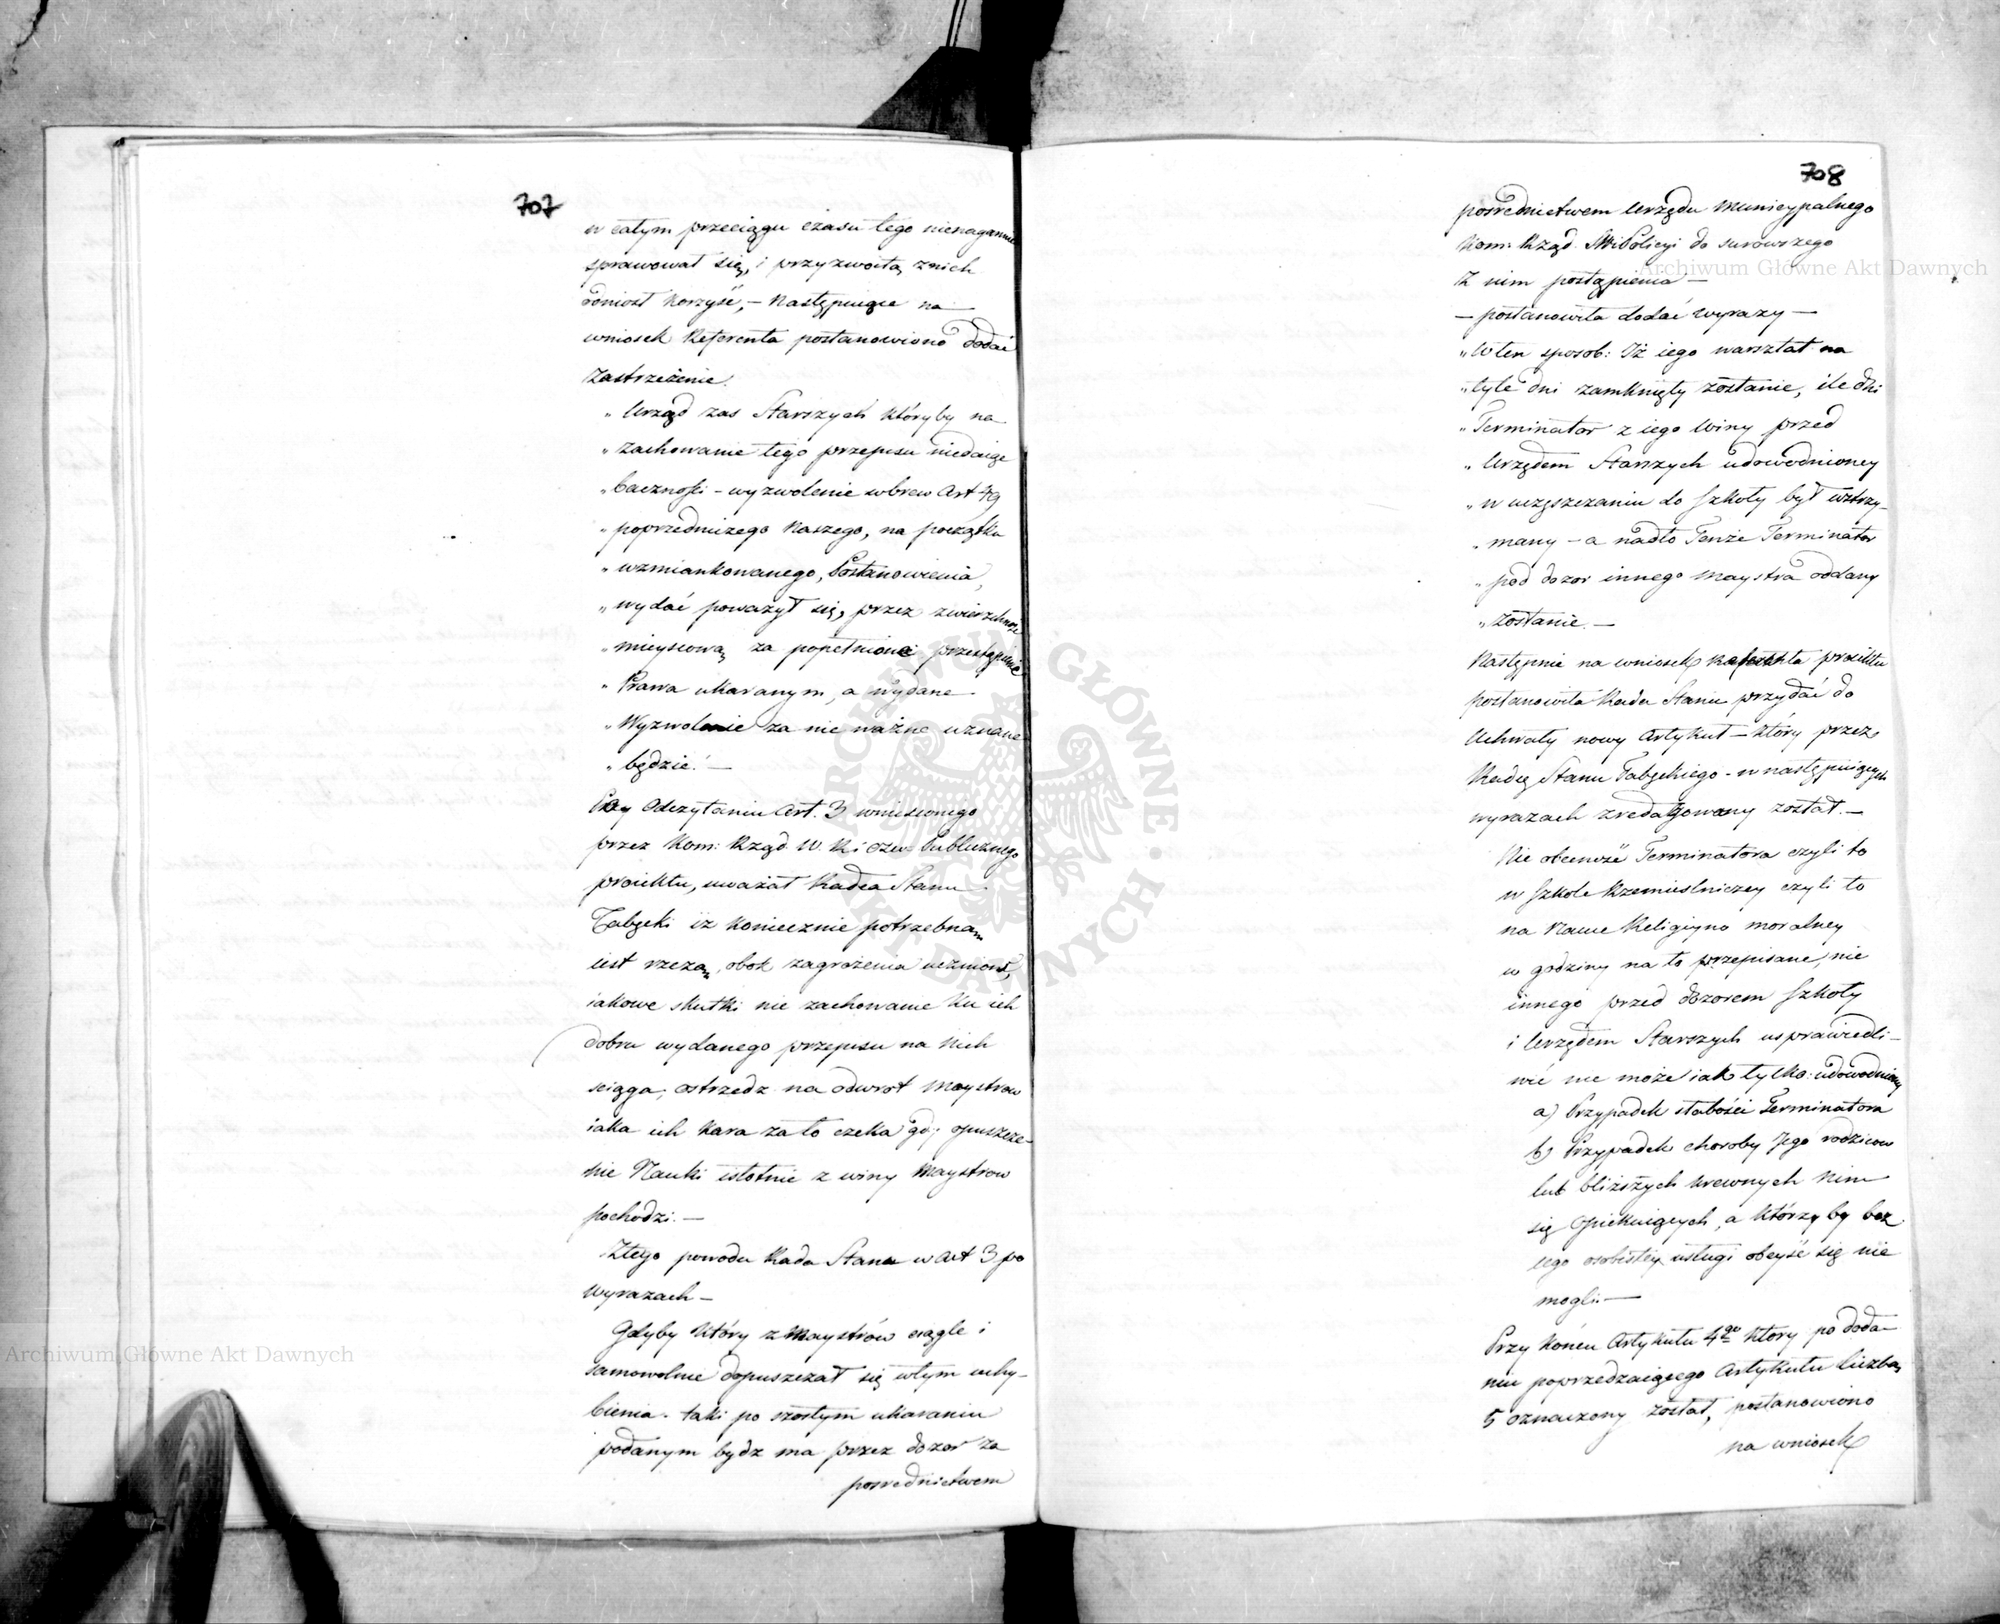 707
w całym przeciągu czasu tego nienagannie
sprawował się, i przyzwoitą z nich
odniosł korzyść, – Następnie na
wniosek Referenta postanowiono dodać
Zastrzeżenie.
„ Urząd zas Starszych któryby na
„ zachowanie tego przepisu niedaiąc
„ bacznośći – wyzwolenie wbrew Art 49
„ poprzedniczego Naszego, na początku
„ wzmiankowanego, Postanowienia,
„ wydać poważył się, przez zwierzchność
„ mieyscową za popełnione przestąpienie
„ Prawa ukaranym, a wydane
„ Wyzwolenie za nie ważne uznane
„ będzie. –
Przy Odczytaniu Art. 3 wniesionego
przez Kom: Rząd. W. R. i Ośw: Publicznego
proiektu, uważał Radca Stanu
Tabęcki iż koniecznie potrzebną
iest rzeczą, obok zagrożenia uczniom,
iakowe skutki nie zachowanie ku ich
dobru wydanego przepisu na Nich
sciąga, ostrzedz na odwrot Maystrow
iaka ich kara za to czeka gdy opuszcze-
nie Nauki istotnie z winy Maystrow
pochodzi. –
Ztego powodu Rada Stanu w Art 3 po
wyrazach –
Gdyby który z Maystrów ciągle i
samowolnie dopuszczał się w tym uchy-
bienia. taki po szostym ukaraniu
podanym bydz ma przez dozor za
posrednictwem
708
posrednictwem Urzędu Municypalnego
Kom: Rząd. SWiPolicyi do surowszego
Z nim postąpienia –
– postanowiła dodać wyrazy –
„ W ten sposob: Iż iego warsztat na
„ tyle dni zamknięty zostanie, ile dni
„ Terminator z iego Winy przed
„ Urzędem Starszych udowodnioney
„ w uczęszczaniu do Szkoły był wstrzy-
„ many – a nadto Tenże Terminator
„ pod dozor innego Maystra oddany
„ zostanie. –
Następnie na wniosek Referenta proiektu
postanowiła Rada Stanu przydać do
Uchwały nowy Artykuł – który przez
Radcę Stanu Tabęckiego – w następuiących
wyrazach zredagowany został. –
Nie obecność Terminatora czyli to
w Szkole Rzemieslniczey czyli to
na Nauce Religiyno moralney
w godziny na to przepisane, nic
innego przed dozorem Szkoły
i Urzędem Starszych usprawiedli-
wić nie może iak tylko: udowodniony
a) Przypadek słabości Terminatora
b) Przypadek choroby Jego rodzicow
lub bliższych krewnych Nim
się Opiekuiących, a którzyby bez
iego osobistey usługi obeyść się nie
mogli. –
Przy końcu Artykułu 4go ktory po doda-
niu poprzedzaiącego Artykułu liczbą
5 oznaczony został, postanowiono
na wniosek
Archiwum Główne Akt Dawnych
Archiwum Główne Akt Dawnych
ARCHIWUM GŁÓWNE AKT DAWNYCH